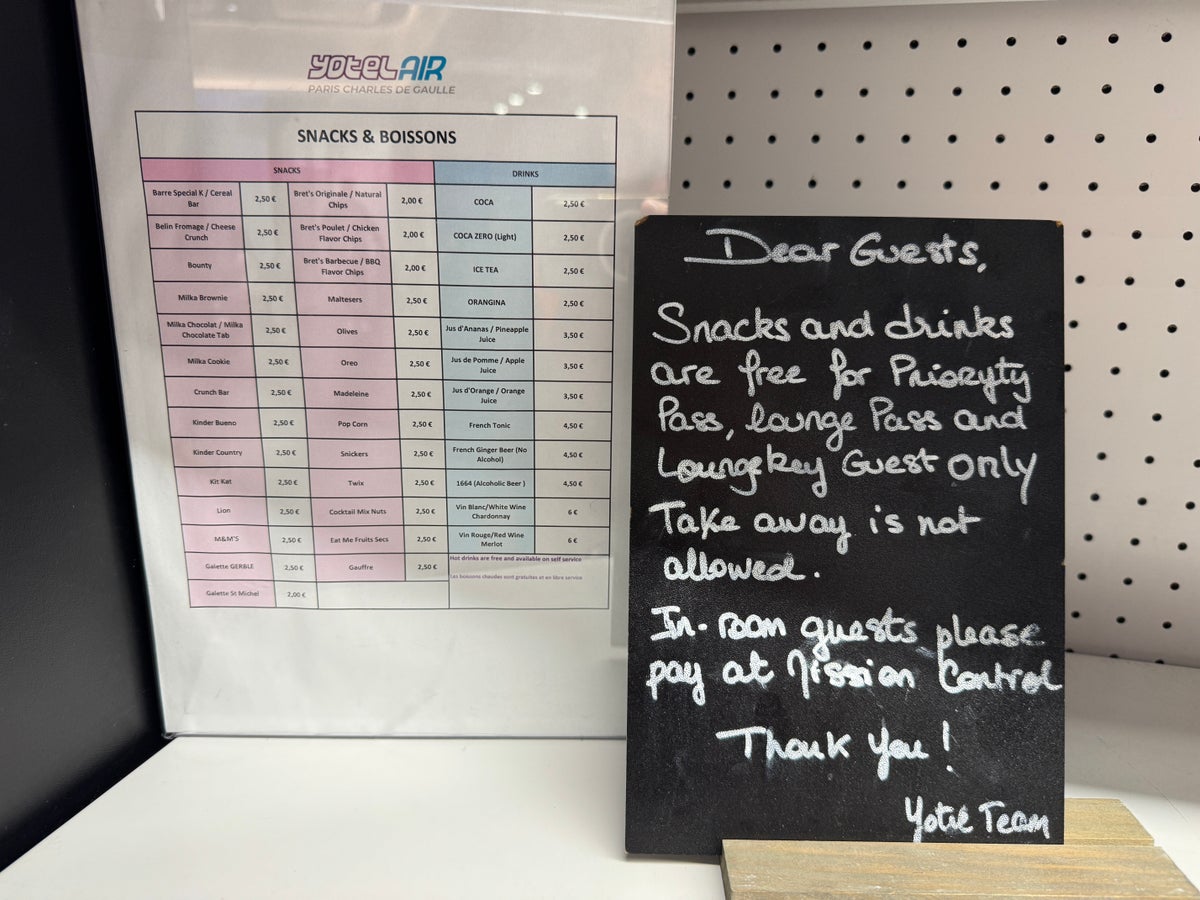 YOTELAIR
PARIS CHARLES DE GAULLE
SNACKS & BOISSONS
SNACKS DRINKS
Barre Special K / Cereal Bar 2,50 € Bret's Originale / Natural Chips 2,00 € COCA 2,50 €
Belin Fromage / Cheese Crunch 2,50 € Bret's Poulet / Chicken Flavor Chips 2,00 € COCA ZERO (Light) 2,50 €
Bounty 2,50 € Bret's Barbecue / BBQ Flavor Chips 2,00 € ICE TEA 2,50 €
Milka Brownie 2,50 € Maltesers 2,50 € ORANGINA 2,50 €
Milka Chocolat / Milka Chocolate Tab 2,50 € Olives 2,50 € Jus d'Ananas / Pineapple Juice 3,50 €
Milka Cookie 2,50 € Oreo 2,50 € Jus de Pomme / Apple Juice 3,50 €
Crunch Bar 2,50 € Madeleine 2,50 € Jus d'Orange / Orange Juice 3,50 €
Kinder Bueno 2,50 € Pop Corn 2,50 € French Tonic 4,50 €
Kinder Country 2,50 € Snickers 2,50 € French Ginger Beer (No Alcohol) 4,50 €
Kit Kat 2,50 € Twix 2,50 € 1664 (Alcoholic Beer ) 4,50 €
Lion 2,50 € Cocktail Mix Nuts 2,50 € Vin Blanc/White Wine Chardonnay 6 €
M&M'S 2,50 € Eat Me Fruits Secs 2,50 € Vin Rouge/Red Wine Merlot 6 €
Galette GERBLE 2,50 € Gauffre 2,50 € Hot drinks are free and available on self service
Les boissons chaudes sont gratuites et en libre service
Galette St Michel 2,00 €
Dear Guests,
Snacks and drinks
are free for Prioryty
Pass, lounge Pass and
Loungekey Guest only
Take away is not
allowed.
In-room guests please
pay at Mission Control
Thank You!
Yotel Team